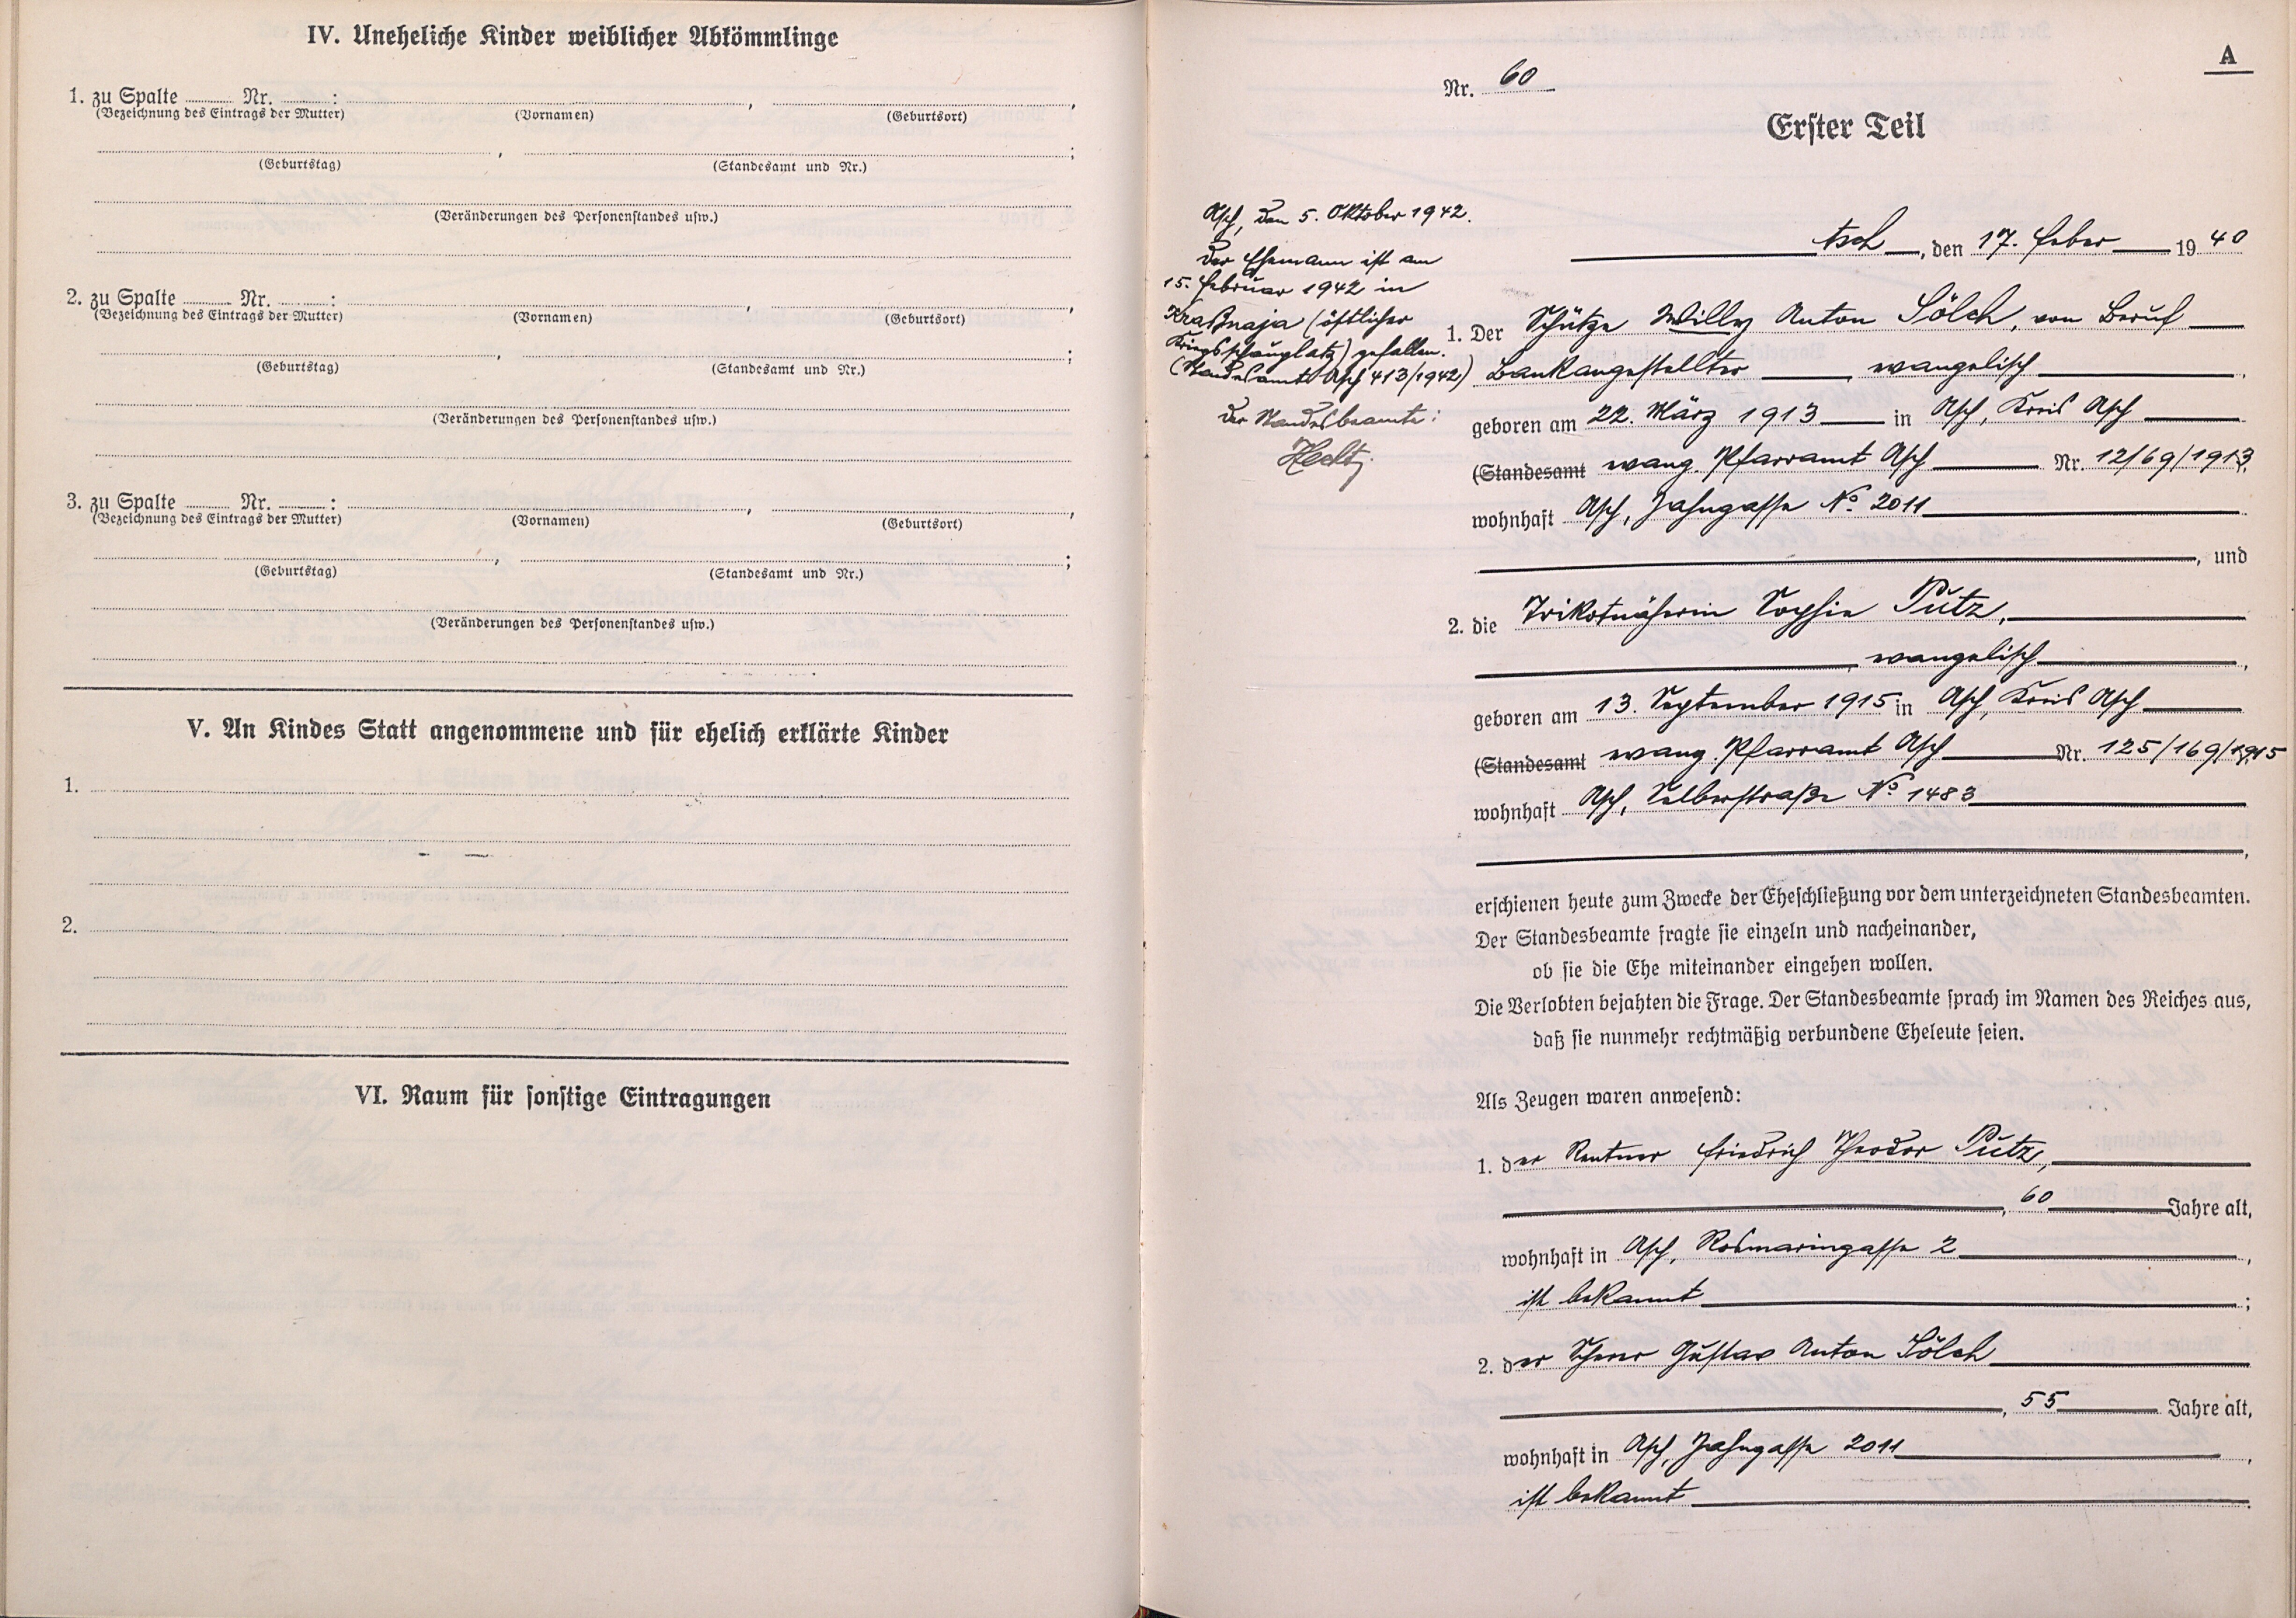 IV. Uneheliche Kinder weiblicher Abkömmlinge
1. zu Spalte ........ Nr. ........ : , ,
(Bezeichnung des Eintrags der Mutter) (Vornamen) (Geburtsort)
, ;
(Geburtstag) (Standesamt und Nr.)
(Veränderungen des Personenstandes usw.)
2. zu Spalte ........ Nr. ........ : , ,
(Bezeichnung des Eintrags der Mutter) (Vornamen) (Geburtsort)
, ;
(Geburtstag) (Standesamt und Nr.)
(Veränderungen des Personenstandes usw.)
3. zu Spalte ........ Nr. ........ : , ,
(Bezeichnung des Eintrags der Mutter) (Vornamen) (Geburtsort)
, ;
(Geburtstag) (Standesamt und Nr.)
(Veränderungen des Personenstandes usw.)
V. An Kindes Statt angenommene und für ehelich erklärte Kinder
1.
2.
VI. Raum für sonstige Eintragungen
A
Nr. 60
Erster Teil
Asch, den 5. Oktober 1942.
Der Ehemann ist am
15. Februar 1942 in
Kraßnaja (östlicher
Kriegsschauplatz) gefallen.
(Standesamt Asch 413/1942)
Der Standesbeamte:
Asch, den 17. Feber 1940
1. Der Schütze Willy Anton Sölch, von Beruf
Bankangestellter, evangelisch,
geboren am 22. März 1913 in Asch, Kreis Asch
(Standesamt evang. Pfarramt Asch Nr. 12/69/1913),
wohnhaft Asch, Jahngasse No. 2011
, und
2. die Trikotnäherin Sophie Putz,
evangelisch,
geboren am 13. September 1915 in Asch, Kreis Asch
(Standesamt evang. Pfarramt Asch Nr. 125/169/1915
wohnhaft Asch, Selberstraße No 1483
,
erschienen heute zum Zwecke der Eheschließung vor dem unterzeichneten Standesbeamten.
Der Standesbeamte fragte sie einzeln und nacheinander,
ob sie die Ehe miteinander eingehen wollen.
Die Verlobten bejahten die Frage. Der Standesbeamte sprach im Namen des Reiches aus,
daß sie nunmehr rechtmäßig verbundene Eheleute seien.
Als Zeugen waren anwesend:
1. der Rentner Friedrich Theodor Putz,
, 60 Jahre alt,
wohnhaft in Asch, Rosmaringasse 2,
ist bekannt;
2. der Scherer Gustav Anton Sölch
, 55 Jahre alt,
wohnhaft in Asch, Jahngasse 2011,
ist bekannt.